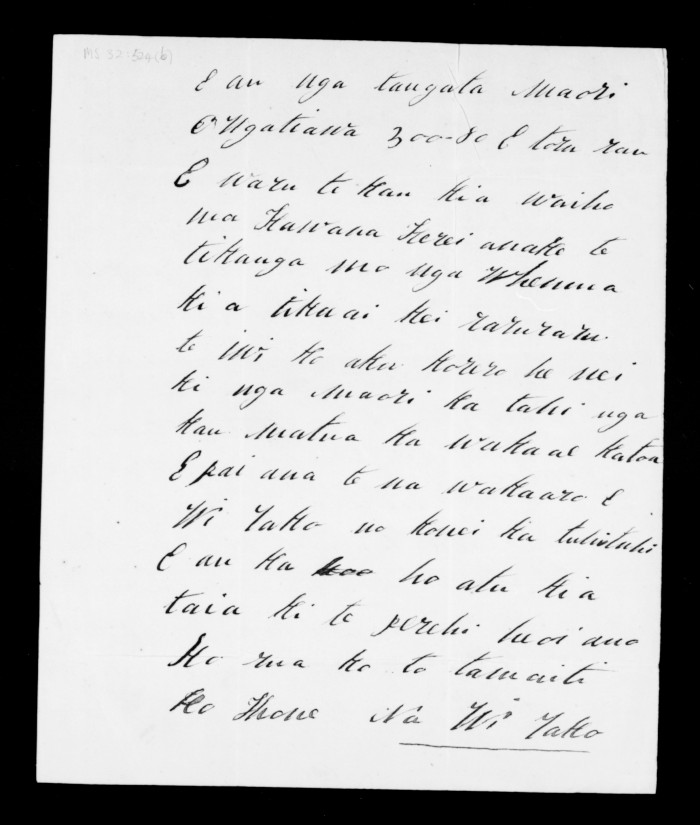 MS 32 524(b)
E au nga tangata Maori
O Ngatiawa 300-80 E toru rau
E waru te kau kia waiho
ma Kawana Kerei anake te
tikanga mo nga Whenua
ki a tika ai kei raruraru
te iwi ko aku korero he nei
ki nga Maori ka tahi nga
kau matua ka wakaae katoa
E pai ana te na wakaaro E
Wi Tako no konei ka tuhituhi
E au ka ho atu kia
taia ki te perehi heoi ano
Ko rua ko to tamaiti
Ko Ihone Na Wi Tako